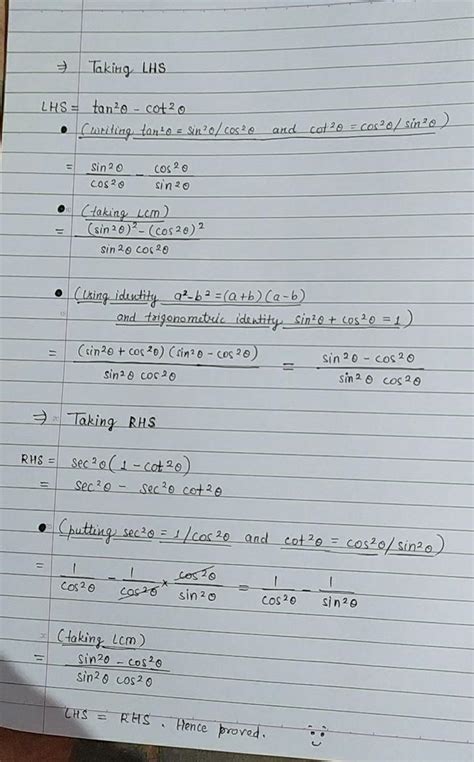 ⇒ Taking LHS
LHS = tan²θ - cot²θ
• (writing tan²θ = sin²θ/cos²θ and cot²θ = cos²θ/sin²θ)
= sin²θ/cos²θ - cos²θ/sin²θ
• (taking LCM)
= (sin²θ)² - (cos²θ)² / sin²θ cos²θ
• (Using identity a²-b² = (a+b) (a-b)
and trigonometric identity sin²θ + cos²θ = 1)
= (sin²θ + cos²θ) (sin²θ - cos²θ) / sin²θ cos²θ = sin²θ - cos²θ / sin²θ cos²θ
⇒ Taking RHS
RHS = sec²θ (1 - cot²θ)
= sec²θ - sec²θ cot²θ
• (putting sec²θ = 1/cos²θ and cot²θ = cos²θ/sin²θ)
= 1/cos²θ - 1/cos²θ × cos²θ/sin²θ = 1/cos²θ - 1/sin²θ
(taking LCM)
= sin²θ - cos²θ / sin²θ cos²θ
LHS = RHS . Hence proved.